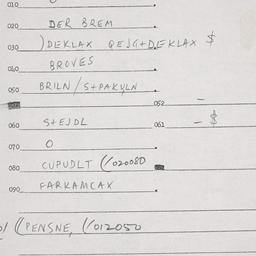 010
020 DER BREM
030 )DEKLAX QEJG+DEKLAX $
040 BROVES
050 BRILN/S+PAKULN
052 –
060 S+EJDL 061 – $
070 O
080 CUPUDLT (/020080
090 FARKAMCAX
((PENSNE, (/012050